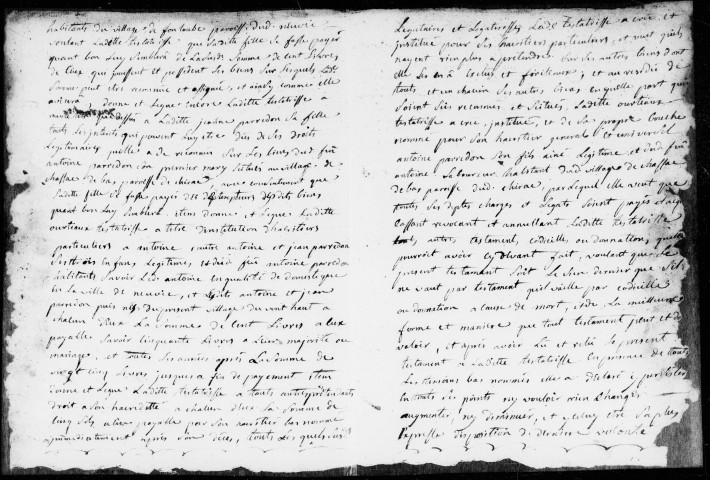 habitants du village de fontoube parroisse dud. neuvic
voulant laditte testatrisse que sa ditte fille se fasse payer
quant bon luy semblera de la ditte somme de cent livres
de ceux qui jouissent et possedent ses biens sur lesquels lad.
somme peut etre reconnue et assignée, et ainsy comme elle
; donne et legue encore laditte testatrisse a
a laditte jeanne parredon sa fille
touts les qui peuvent luy etre dus de ses droits
legitimaires qu'elle a de reconnus sur les biens dud. feu
antoine parredon son premier mary situés au village de
chassac de bas parroisse de chirac, avec que
laditte fille se fasse payer des detempteurs desdits biens
quant bon luy semblera. item donne et legue laditte
testatrisse a titre d'institution d'haeritiers
particuliers a antoine autre antoine et jean parredon
ses trois enfans legitimes et dud. feu antoine parredon
habitants savoir led. antoine en qualité de domestique
en la ville de neuvic, et antoine et jean
parredon puis nés du present village du mont haut a
chacun d'eux la somme de cent livres a eux
payable savoir cinquante livres a leur majorité ou
mariage, et toutes les années après la somme de
vingt cinq livres jusques a fin de payement. item
donne et legue laditte testatrisse a touts autres pretendants
droit a son haereditté a chacun d'eux la somme de
cinq sols a eux payable par son haeritier bas nommé
immediatement après son déces, touts lesquels susd.
legataires et legatrisses lad. testatrisse a crée et
institue pour ses haeritiers particuliers, et veut qu'ils
n'ayent rien plus a pretendre sur ses autres biens dont
elle les en a exclus et forclaux; et au residu de
touts, et un chacun ses autres biens en quelle part que
soient sis reconnus et situés, laditte
testatrisse a crée, institue, et de sa propre bouche
nommé pour son haeritier general et universel
antoine parredon son fils ainé legitime et dud. feu
antoine laboureur habitant dud. village de chassac
de bas paroisse dud. chirac, par lequel elle veut que
toutes ses dettes charges et legats soient payés et acquités
cassant revocant et annullant laditte testatrisse
tout autres testament, codicille, ou donnation, qu'elle
pourroit avoir cy devant fait, voulant que le
present testament soit le sien dernier que s'il
ne vaut par testament qu'il vaille par codicille
ou donnation a cause de mort, et de la meilleure
forme et maniere que tout testament peut et doit
valoir, et après avoir lû et relû le present
testament a laditte testatrisse en presence de touts
les temoins bas nommés elle a déclaré y persister
en touts ses points ny vouloir rien changer
augmenter ny diminuer, et etre sa plus
expresse disposition de derniere volonté